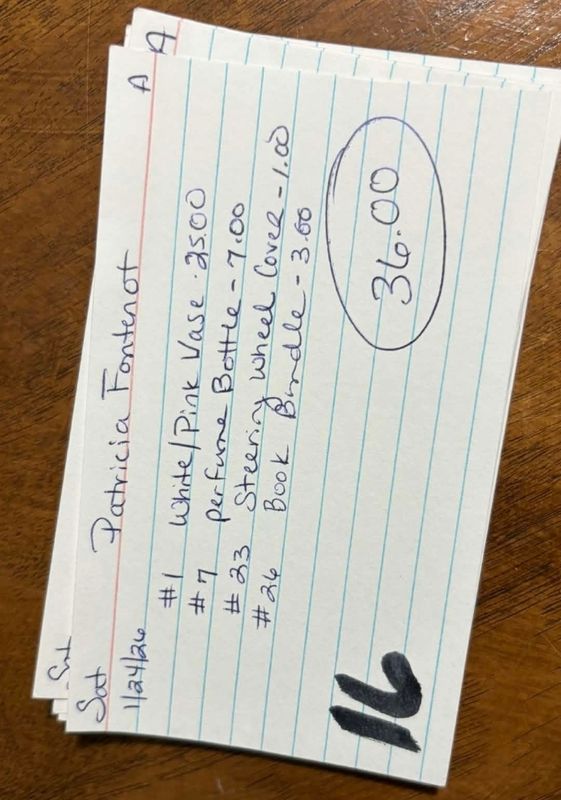 Sat Patricia Fontenot A
1/24/26
#1 White/Pink Vase - 25.00
#7 perfume Bottle - 7.00
#23 Steering Wheel Cover - 1.00
#26 Book Bundle - 3.00
36.00
16
Sat A